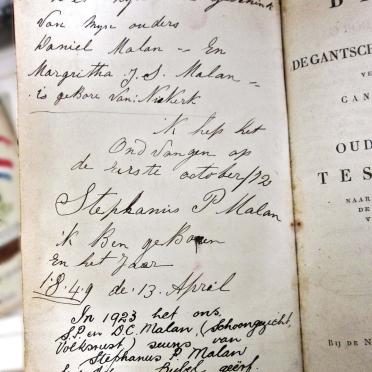 Van Myn ouders
Daniel Malan - En
Margritha J. S. Malan -
is geBore Van: Niekerk
ik heb het
Ondvangen op
de Eerste october/72
Stephanus P Malan
ik Ben geBoren
En het Jaar
1.8.49 de 13. April
In 1923 het ons,
S.P. en D.C. Malan, (Schoongezicht,
Volksrust) seuns van
Stephanus P. Malan
Bybel geërf.
B
DE GANTSCH
VE
CAN
OUD
TES
NAAR
DE
V
Bij de N